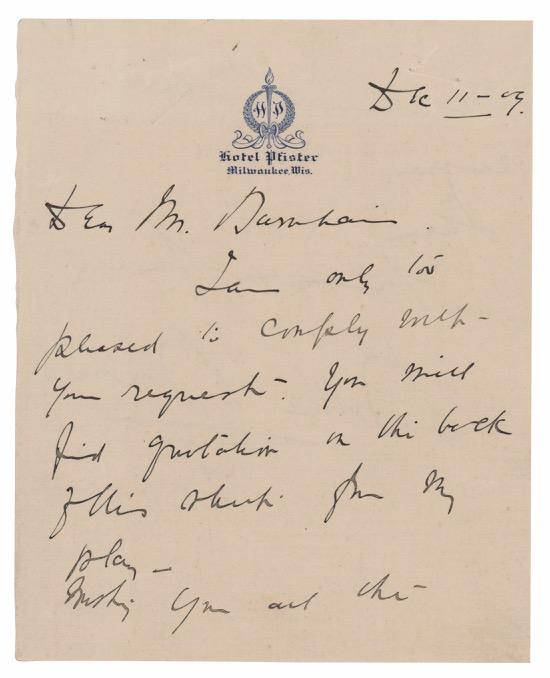 Dec 11-09.
HP
Hotel Pfister
Milwaukee, Wis.
Dear Mr. Burnham.
I am only too
pleased to comply with
your request. You will
find quotation on the back
of this sheet. from my
play -
Wishing you all the